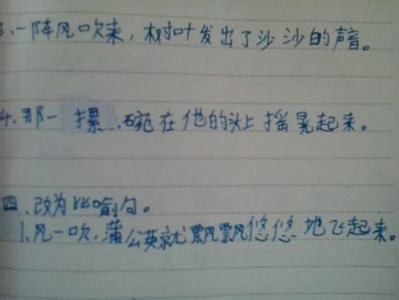 3、一阵风吹来，树叶发出了沙沙的声音。
4、那一摞碗在他的头上摇晃起来。
四、改为比喻句。
1.风一吹，蒲公英就飘飘悠悠地飞起来。